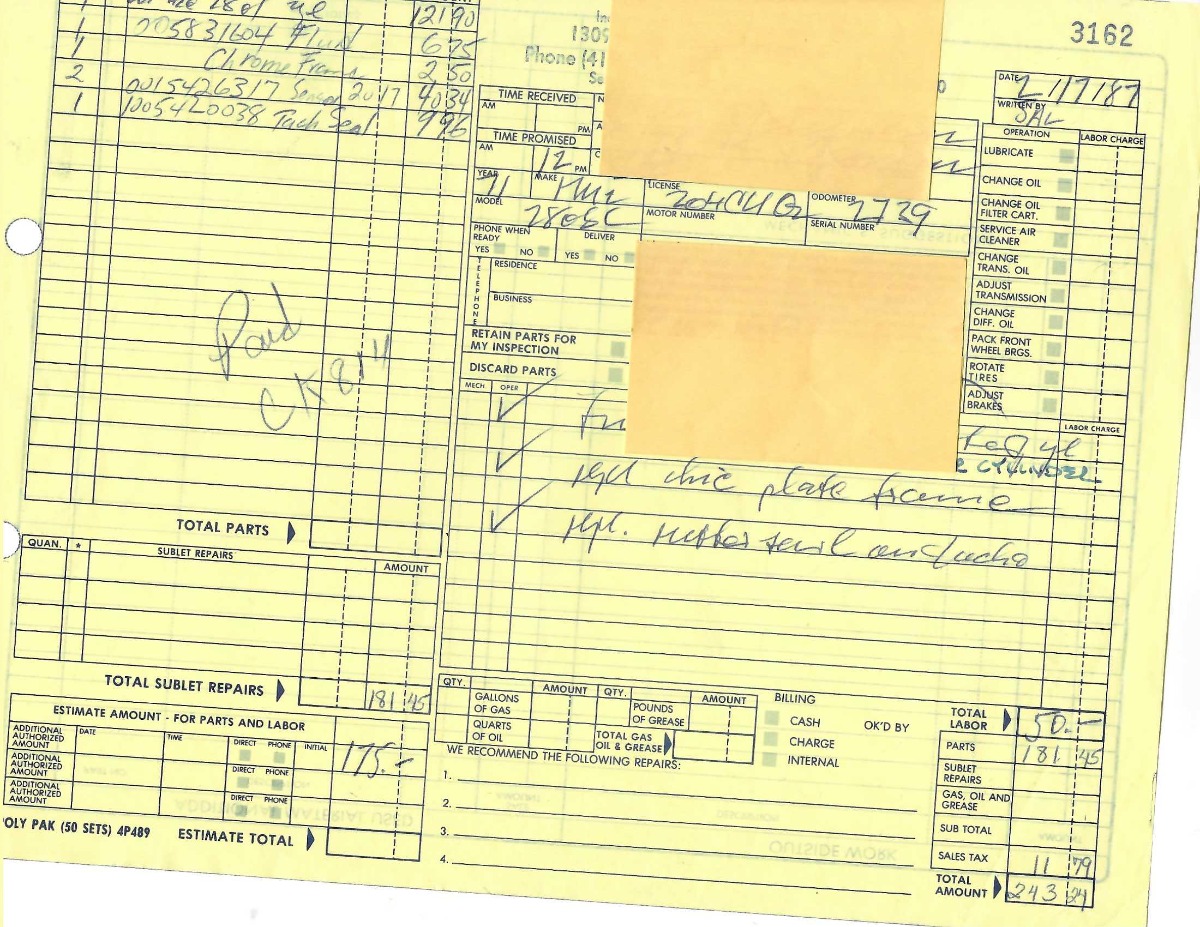 3162
12190
1 005831604 Fluid 6 75
1 Chrome Frame 2 50
2 0015426317 Sensor 2017 40 34
1 1005420038 Tach Seal 9 96
1309
Phone (41
DATE 2/17/87
WRITTEN BY SAL
TIME RECEIVED
AM
PM
TIME PROMISED
AM 12 PM
YEAR 71 MAKE LICENSE 204CUG ODOMETER 2739
MODEL 280SC MOTOR NUMBER SERIAL NUMBER
PHONE WHEN READY DELIVER
YES NO YES NO
TELEPHONE
RESIDENCE
BUSINESS
RETAIN PARTS FOR MY INSPECTION
DISCARD PARTS
MECH. OPER
OPERATION LABOR CHARGE
LUBRICATE
CHANGE OIL
CHANGE OIL FILTER CART.
SERVICE AIR CLEANER
CHANGE TRANS. OIL
ADJUST TRANSMISSION
CHANGE DIFF. OIL
PACK FRONT WHEEL BRGS.
ROTATE TIRES
ADJUST BRAKES
LABOR CHARGE
CYLINDER
plate frame
Paid
CK 814
TOTAL PARTS
QUAN. * SUBLET REPAIRS AMOUNT
TOTAL SUBLET REPAIRS 181 45
ESTIMATE AMOUNT - FOR PARTS AND LABOR
ADDITIONAL AUTHORIZED AMOUNT DATE TIME DIRECT PHONE INITIAL 175.-
ADDITIONAL AUTHORIZED AMOUNT DIRECT PHONE
ADDITIONAL AUTHORIZED AMOUNT DIRECT PHONE
OLY PAK (50 SETS) 4P489 ESTIMATE TOTAL
QTY. AMOUNT QTY. AMOUNT
GALLONS OF GAS POUNDS OF GREASE
QUARTS OF OIL TOTAL GAS OIL & GREASE
BILLING
CASH OK'D BY
CHARGE
INTERNAL
WE RECOMMEND THE FOLLOWING REPAIRS:
1.
2.
3.
4.
TOTAL LABOR 50.-
PARTS 181 45
SUBLET REPAIRS
GAS, OIL AND GREASE
SUB TOTAL
SALES TAX 11 79
TOTAL AMOUNT 243 24